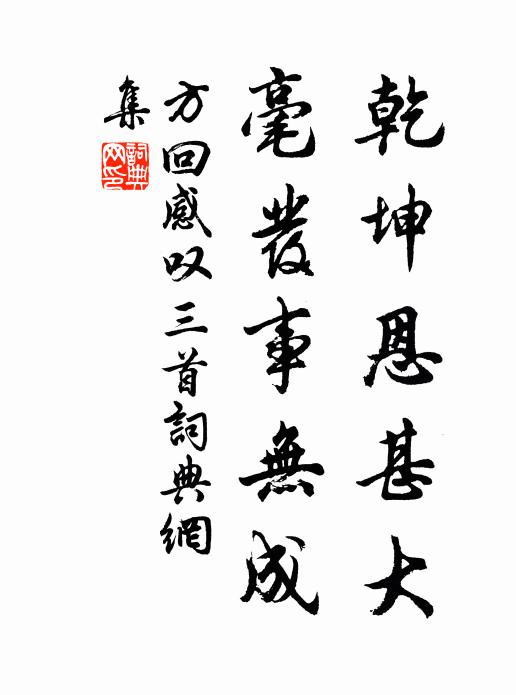 乾坤恩甚大
毫發事無成
方回感叹三首詞典網
集
詞典網印